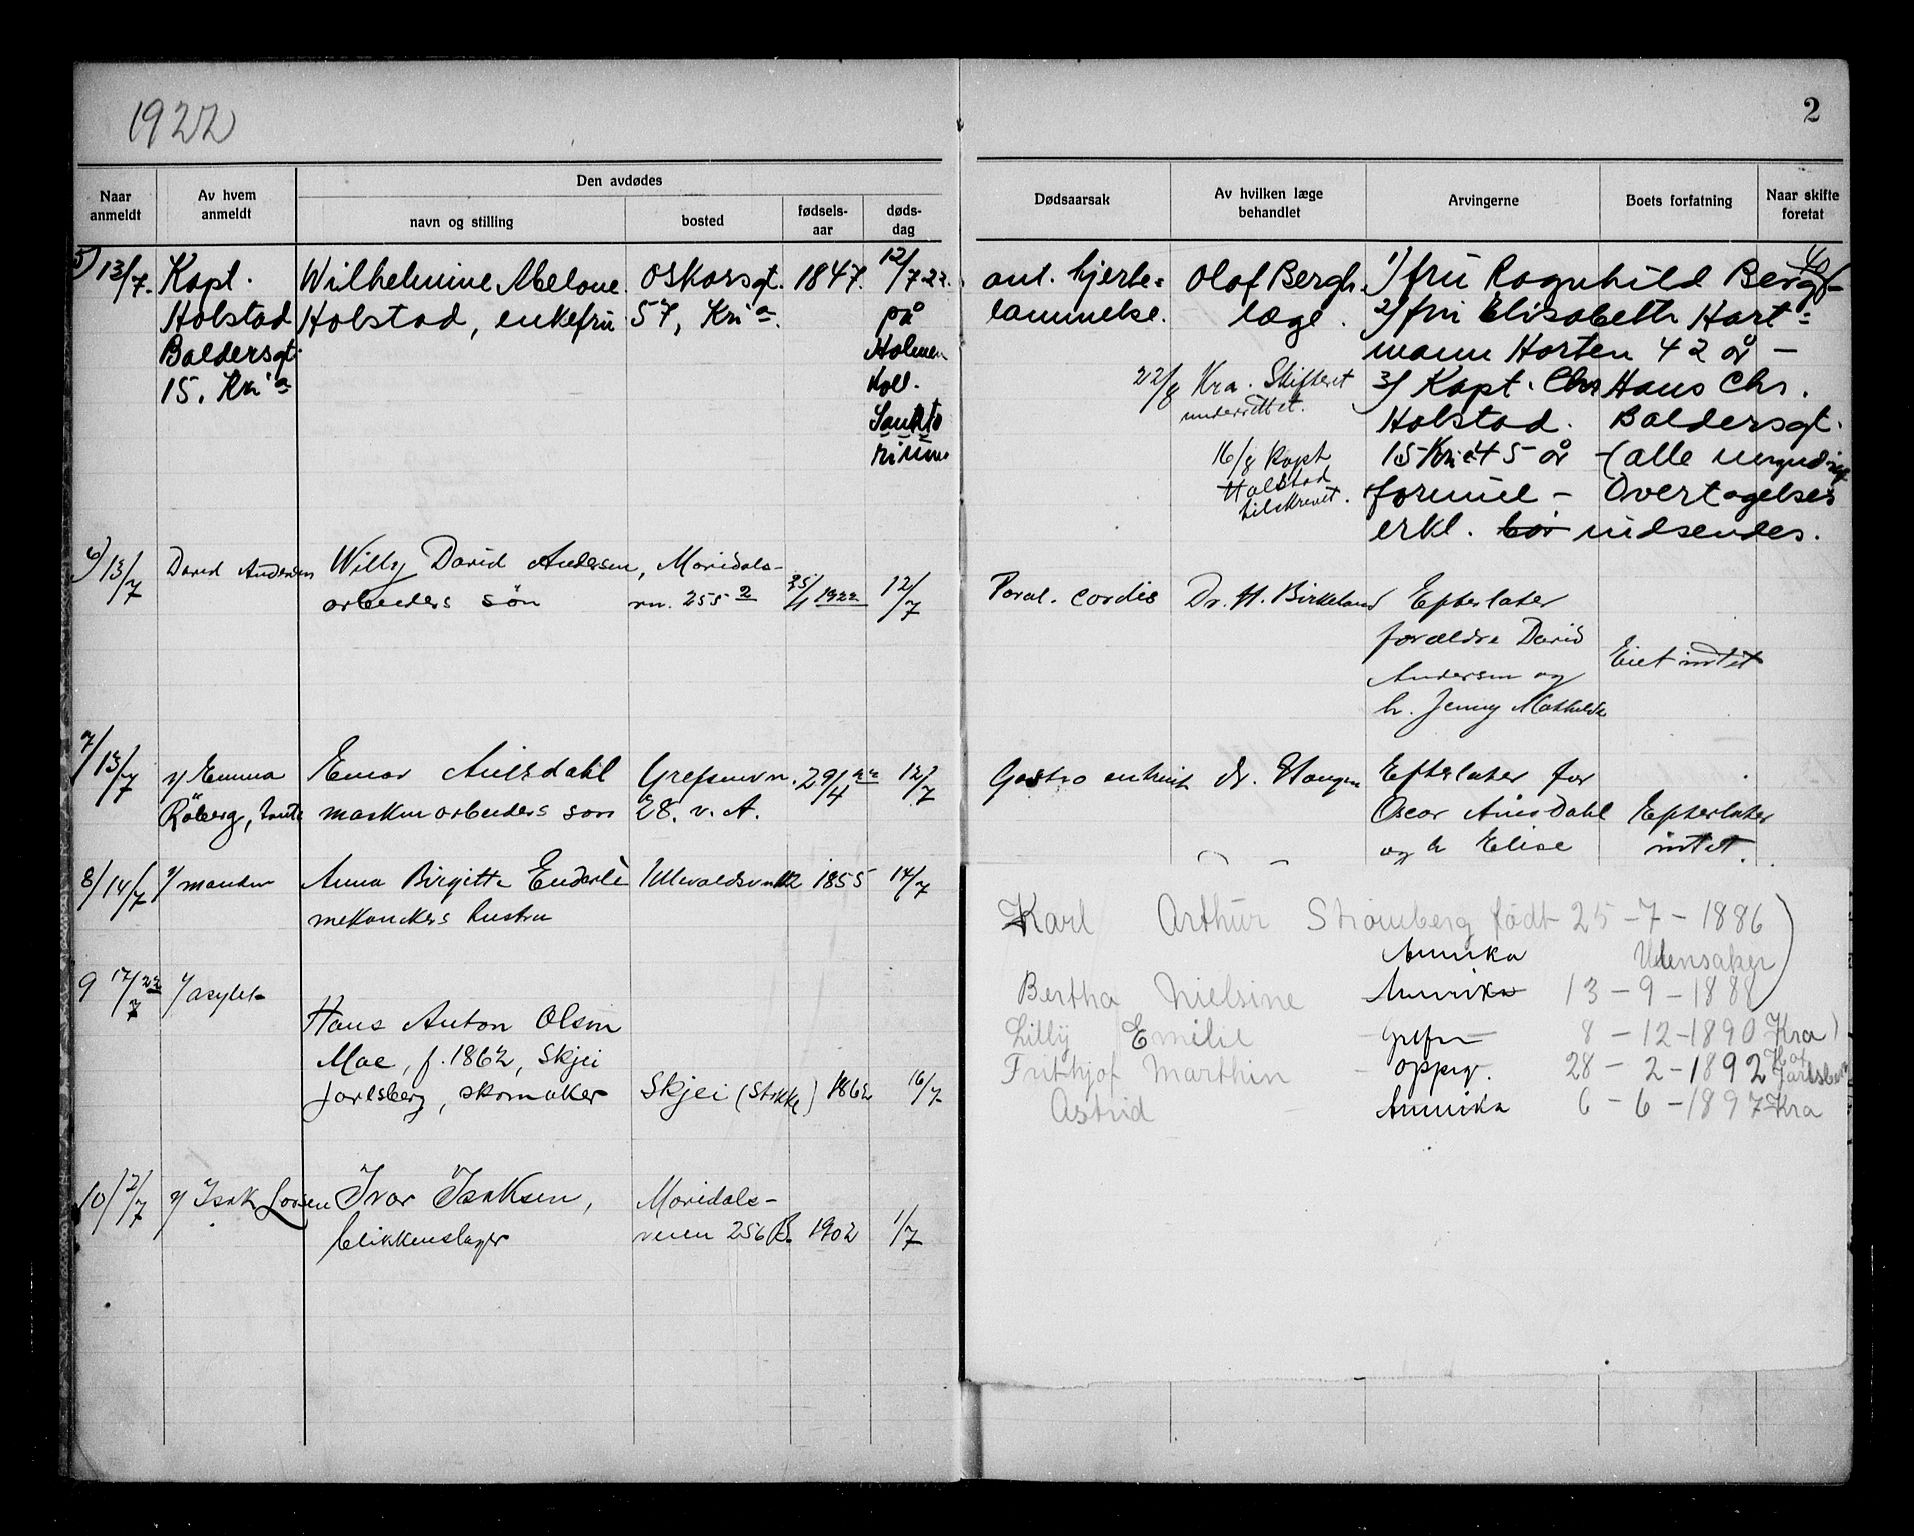 1922
2
Naar anmeldt
Av hvem anmeldt
Den avdødes
navn og stilling
bosted
fødselsaar
dødsdag
Dødsaarsak
Av hvilken læge behandlet
Arvingerne
Boets forfatning
Naar skifte foretat
5) 13/7. Kapt. Wilhelmine Abelone Oskarsgt. 1847. 12/7 22.
Holstad Holstad, enkefru 57, Kria. på
Baldersgt. Holmen
15. Kria Koll.
Sanato
rium
ant. hjerte= Olaf Bergh. 1) fru Ragnhild Bergh
lammelse. læge. 2) fru Elisabeth Hart=
mann Horten 42 år –
22/8 Kra. Skifteret 3) Kapt. Chr Hans Chr.
underrettet. Holstad. Baldersgt.
16/8 Kapt 15 Kria 45 år – (alle myndige
Holstad formue – Overtagelses
tilskrevet. erkl. bør indsendes.
6) 13/7 David Andersen Willy David Andersen, Maridals- 25/1 1922 12/7
arbeiders søn vn. 255 2
Paral. cordis Dr. H. Birkeland Efterlater
forældre David
Andersen og Eiet intet
h. Jenny Mathilde
7/ 13/7 v/ Emma Einar Aulsdahl Grefsenvn. 29/4 22 12/7
Røberg, tante maskinarbeiders søn 28. v. A.
Gastro enterit dr. Haugen Efterlater for
Oscar Aulsdahl Efterlater
og h Elise intet.
8/ 14/7 v/ manden Anna Birgitte Enderle Ullevaldsvn 112 1855 14/7
mekanikers hustru
9 17/7 22 v/ asylet
Hans Anton Olsen
Moe, f. 1862, Skjei
Jarlsberg, skomaker Skjei (Stokke) 1862 16/7
10/ 12/7 v/ Isak Larsen Ivar Isaksen, Maridals-
blikkenslager veien 256 B. 1902 1/7
Karl Arthur Strømberg født 25 – 7 – 1886
Annika Ullensaker
Bertha Nielsine Annika 13 – 9 – 1888
Lilly Emilie – Grefsen 8 – 12 – 1890 Kra
Frithjof Marthin – oppig. 28 – 2 – 1892 Jarlsberg
Astrid – Annika 6 – 6 – 1897 Kra